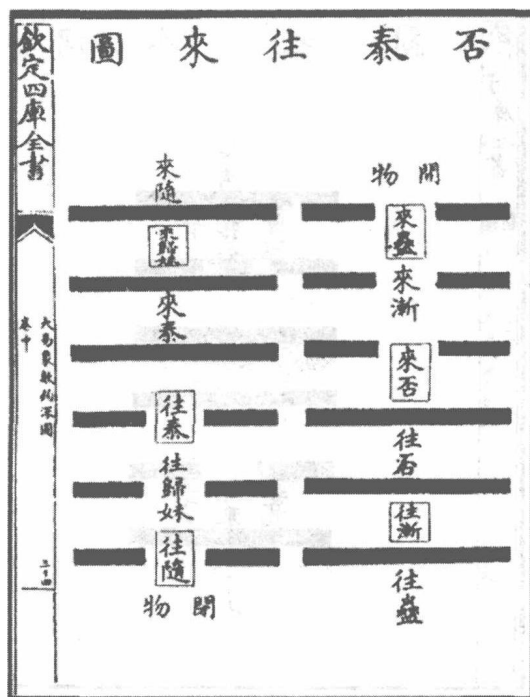 否泰往來圖
開物
來蠱
來漸
來否
往否
往漸
往蠱
來隨
來歸妹
來泰
往泰
往歸妹
往隨
閉物
欽定四庫全書
大易象數鉤深圖
卷中
三十四